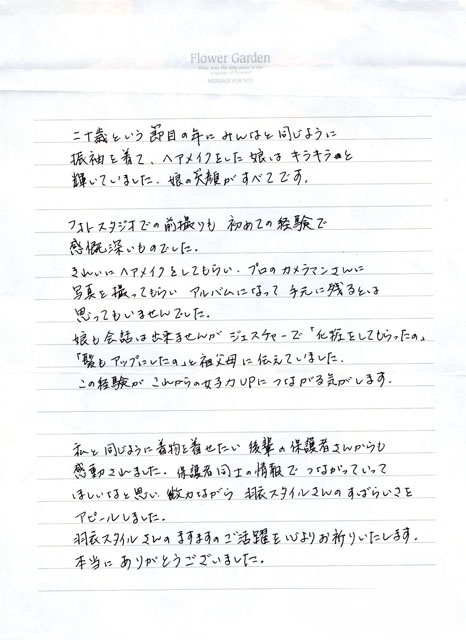 Flower Garden
MESSAGE FOR YOU
二十歳という節目の年に みんなと同じように
振袖を着て、ヘアメイクをした娘は キラキラと
輝いていました。娘の笑顔がすべてです。
フォトスタジオでの前撮りも 初めての経験で
感慨深いものでした。
きれいにヘアメイクをしてもらい、プロのカメラマンさんに
写真を撮ってもらい アルバムになって 手元に残るとは
思ってもいませんでした。
娘も会話は出来ませんが ジェスチャーで「化粧をしてもらったの」
「髪もアップにしたの」と祖父母に伝えていました。
この経験が これからの女子力UPに つながる気がします。
私と同じように着物を着せたい 後輩の保護者さんからも
感動されました。保護者同士の情報で つながっていって
ほしいなと思い 微力ながら 羽衣スタイルさんのすばらいさを
アピールしました。
羽衣スタイルさんのますますのご活躍を心よりお祈りいたします。
本当に ありがとうございました。